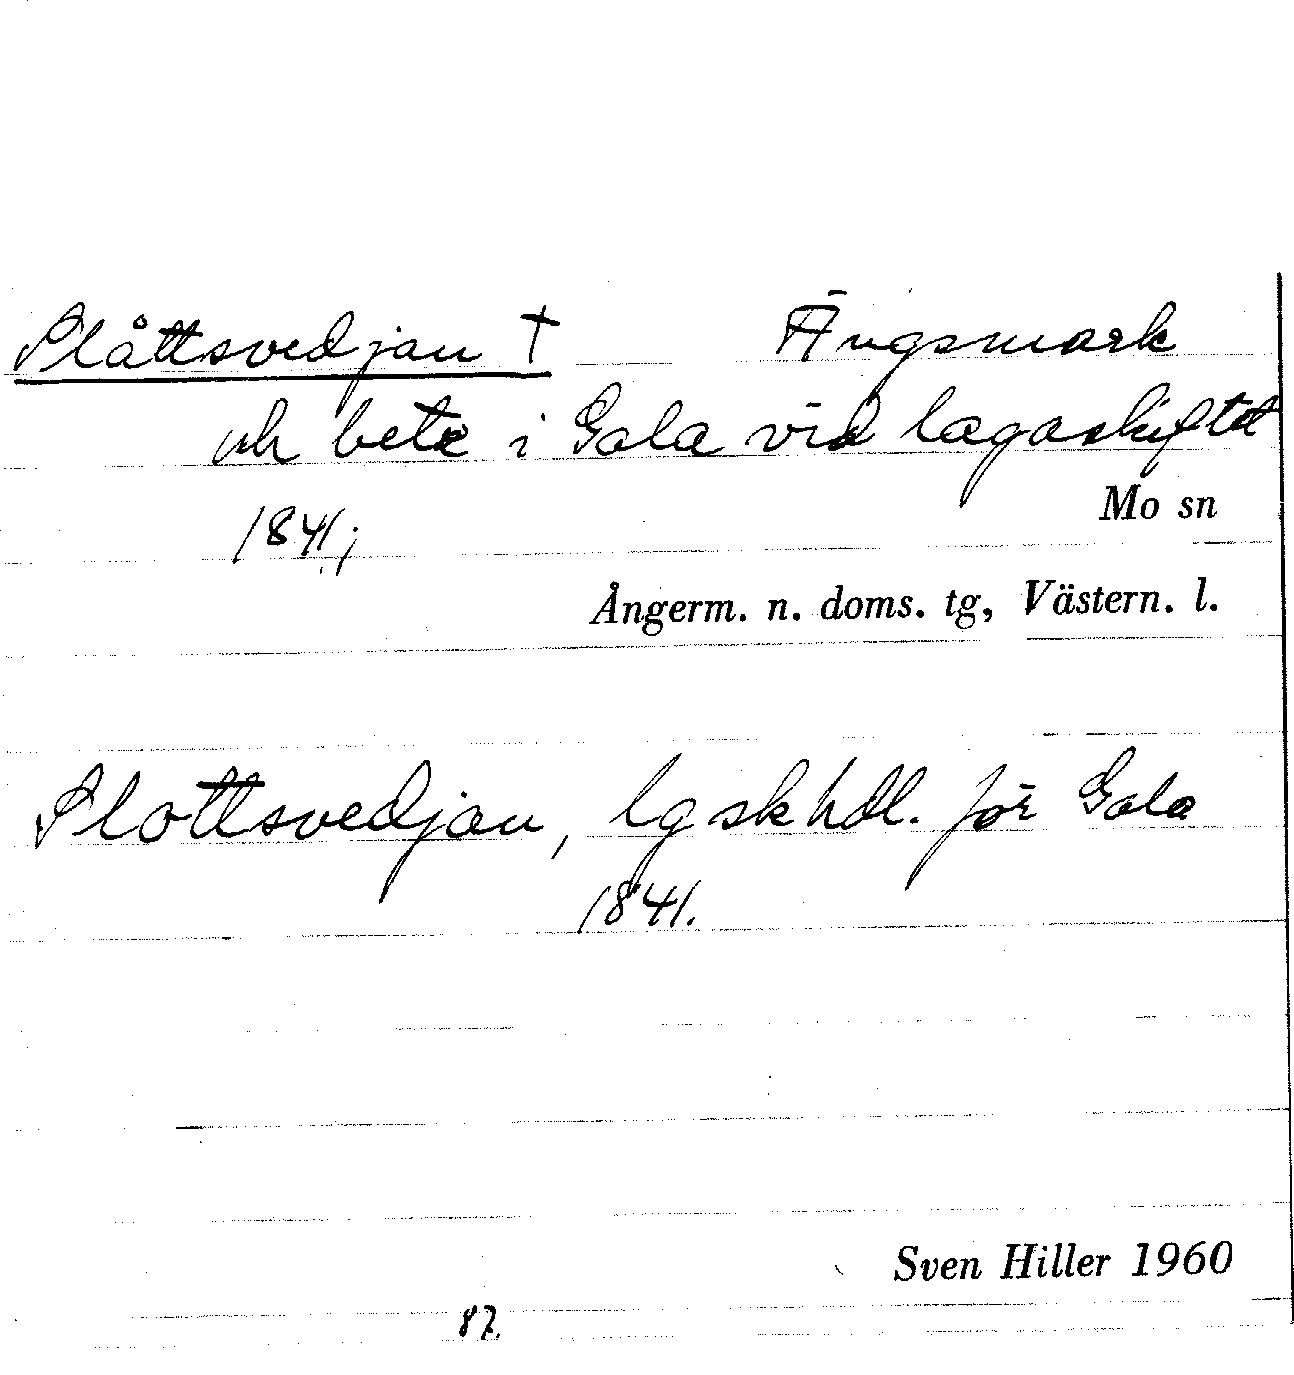 Slåttsvedjan † Ängsmark
och bete i Gala vid lagaskiftet
1841;
Mo sn
Ångerm. n. doms. tg, Västern. l.
Slottsvedjan, lgskhdl. för Gala
1841.
Sven Hiller 1960
82